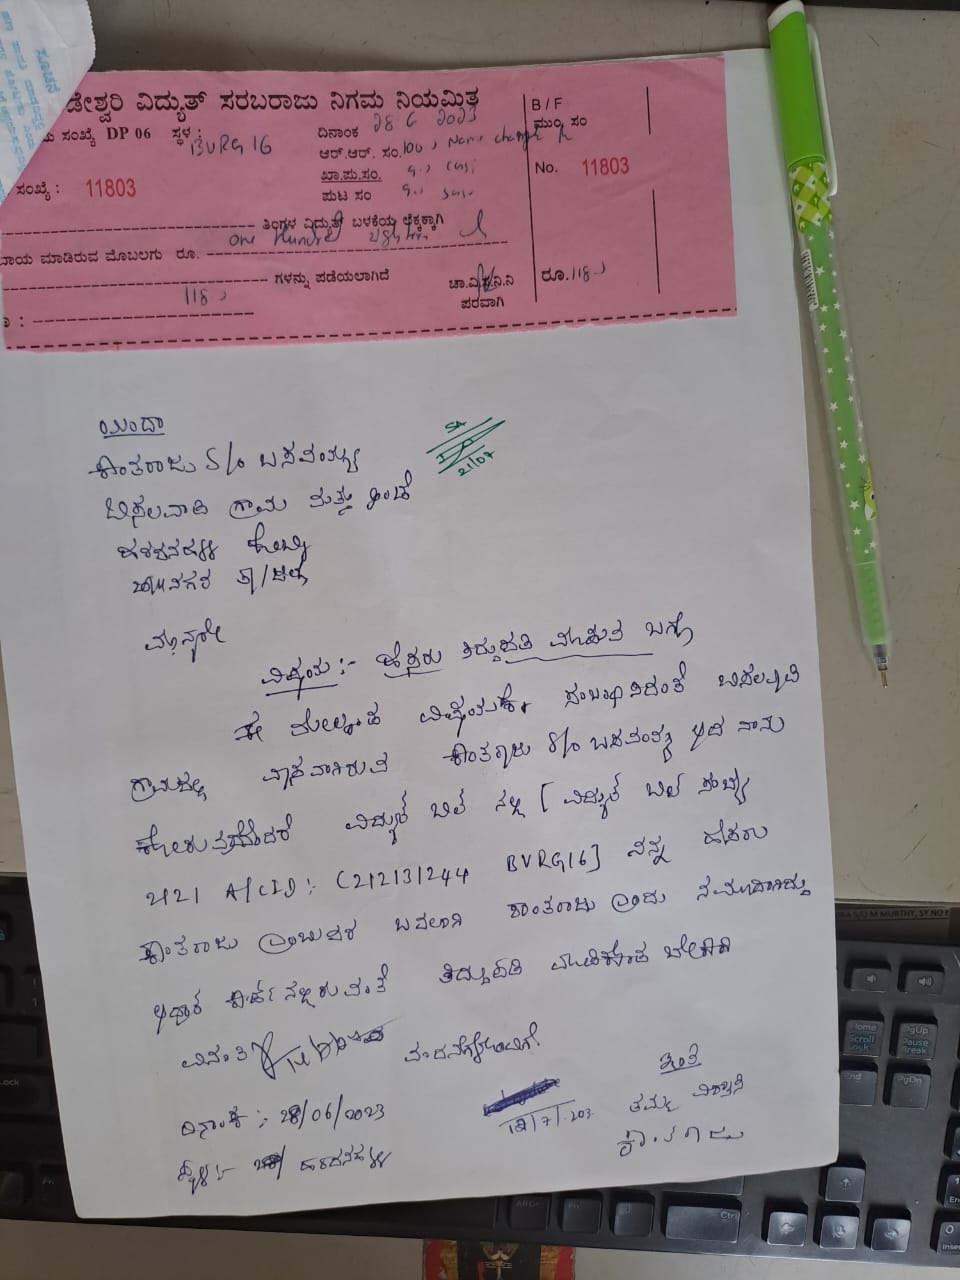 ಡೇಶ್ವರಿ ವಿದ್ಯುತ್ ಸರಬರಾಜು ನಿಗಮ ನಿಯಮಿತ
ಸಂಖ್ಯೆ DP 06 ಸ್ಥಳ : BVRG 16 ದಿನಾಂಕ 28 6 2023
ಆರ್.ಆರ್. ಸಂ. 100 Name change
ಖಾ.ಪು.ಸಂ. 9
ಪುಟ ಸಂ 9
ಸಂಖ್ಯೆ : 11803
B / F
ಮುಂ. ಸಂ
No. 11803
ತಿಂಗಳ ವಿದ್ಯುತ್ ಬಳಕೆಯ ಲೆಕ್ಕಕ್ಕಾಗಿ
ಬಾಯ ಮಾಡಿರುವ ಮೊಬಲಗು ರೂ. One Hundred
ಗಳನ್ನು ಪಡೆಯಲಾಗಿದೆ
118
ಚಾ.ವಿ.ಸ.ನಿ.ನಿ
ಪರವಾಗಿ
ರೂ. 118
ಯಿಂದಾ
ಕಾಂತರಾಜು S/o ಬಸವಯ್ಯ
ಬಿಸಲವಾಡಿ ಗ್ರಾಮ ಮತ್ತು ಅಂಚೆ
ಹರದನಹಳ್ಳಿ ಹೋಬಳಿ
ಚಾ||ನಗರ ತಾ/ಜಿಲ್ಲೆ
21/07
ಮಾನ್ಯರೇ
ವಿಷಯ :- ಹೆಸರು ತಿದ್ದುಪಡಿ ಮಾಡುವ ಬಗ್ಗೆ
ಈ ಮೇಲ್ಕಂಡ ವಿಷಯಕ್ಕೆ ಸಂಬಂಧಿಸಿದಂತೆ ಬಿಸಲವಾಡಿ
ಗ್ರಾಮದಲ್ಲಿ ವಾಸವಾಗಿರುವ ಕಾಂತರಾಜು S/o ಬಸವಯ್ಯ ಆದ ನಾನು
ಕೋರುವುದೇನೆಂದರೆ ವಿದ್ಯುತ್ ಬಿಲ್ ನಲ್ಲಿ [ ವಿದ್ಯುತ್ ಬಿಲ್ ಸಂಖ್ಯೆ
2121 A/CID:. (212131244 BVRG16] ನನ್ನ ಹೆಸರು
ಕಾಂತರಾಜು ಎಂಬುವುದರ ಬದಲಾಗಿ ಶಾಂತರಾಜು ಎಂದು ನಮೂದಾಗಿದ್ದು
ಆಧಾರ್ ಕಾರ್ಡ್ ನಲ್ಲಿರುವಂತೆ ತಿದ್ದುಪಡಿ ಮಾಡಿಕೊಡ ಬೇಕಾಗಿ
ವಿನಂತಿ ವಂದನೆಗಳೊಂದಿಗೆ
ದಿನಾಂಕ :. 28/06/2023
ಇಂತಿ
ತಮ್ಮ ವಿಶ್ವಾಸಿ
ಕಾಂತರಾಜು
ಸ್ಥಳ :- ಹರದನಹಳ್ಳಿ